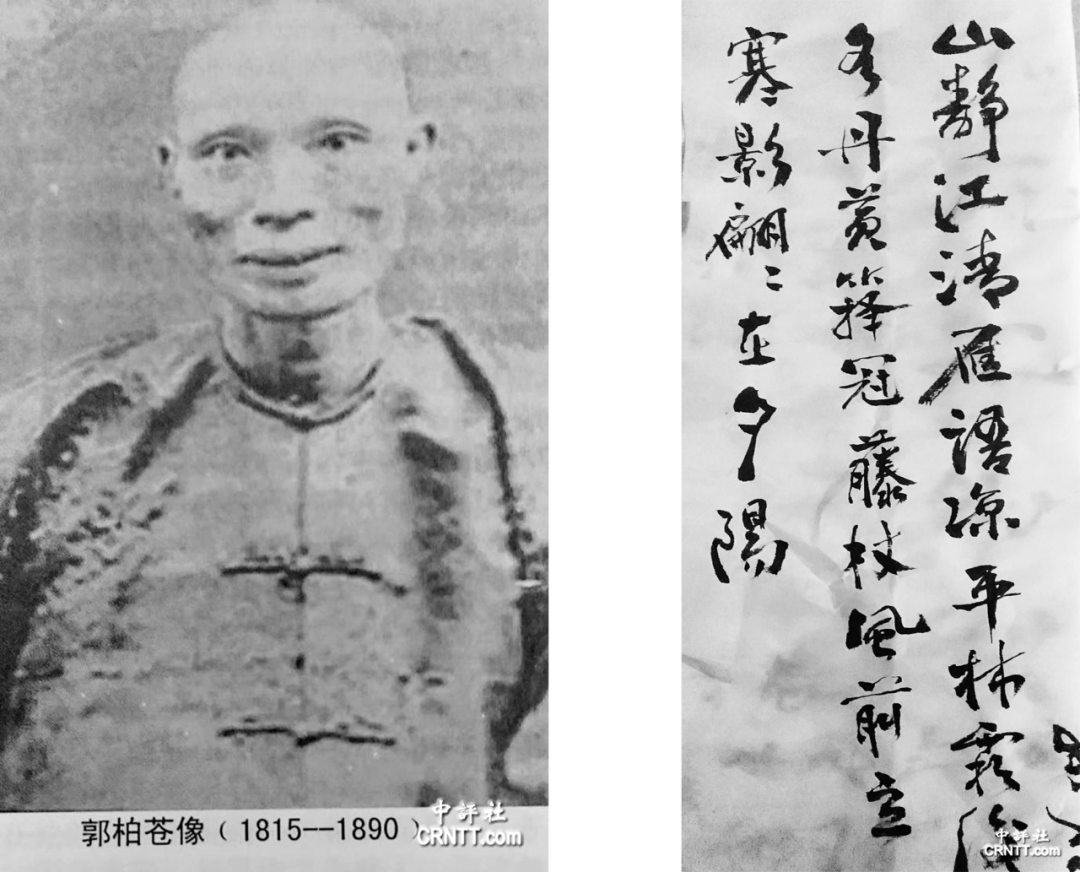 郭柏苍像（1815--1890）
中評社
CRNTT.com
山靜江清雁語涼平林霜後
各丹黃籜冠藤杖風前立
寒影翩〻在夕陽
中評社
CRNTT.com